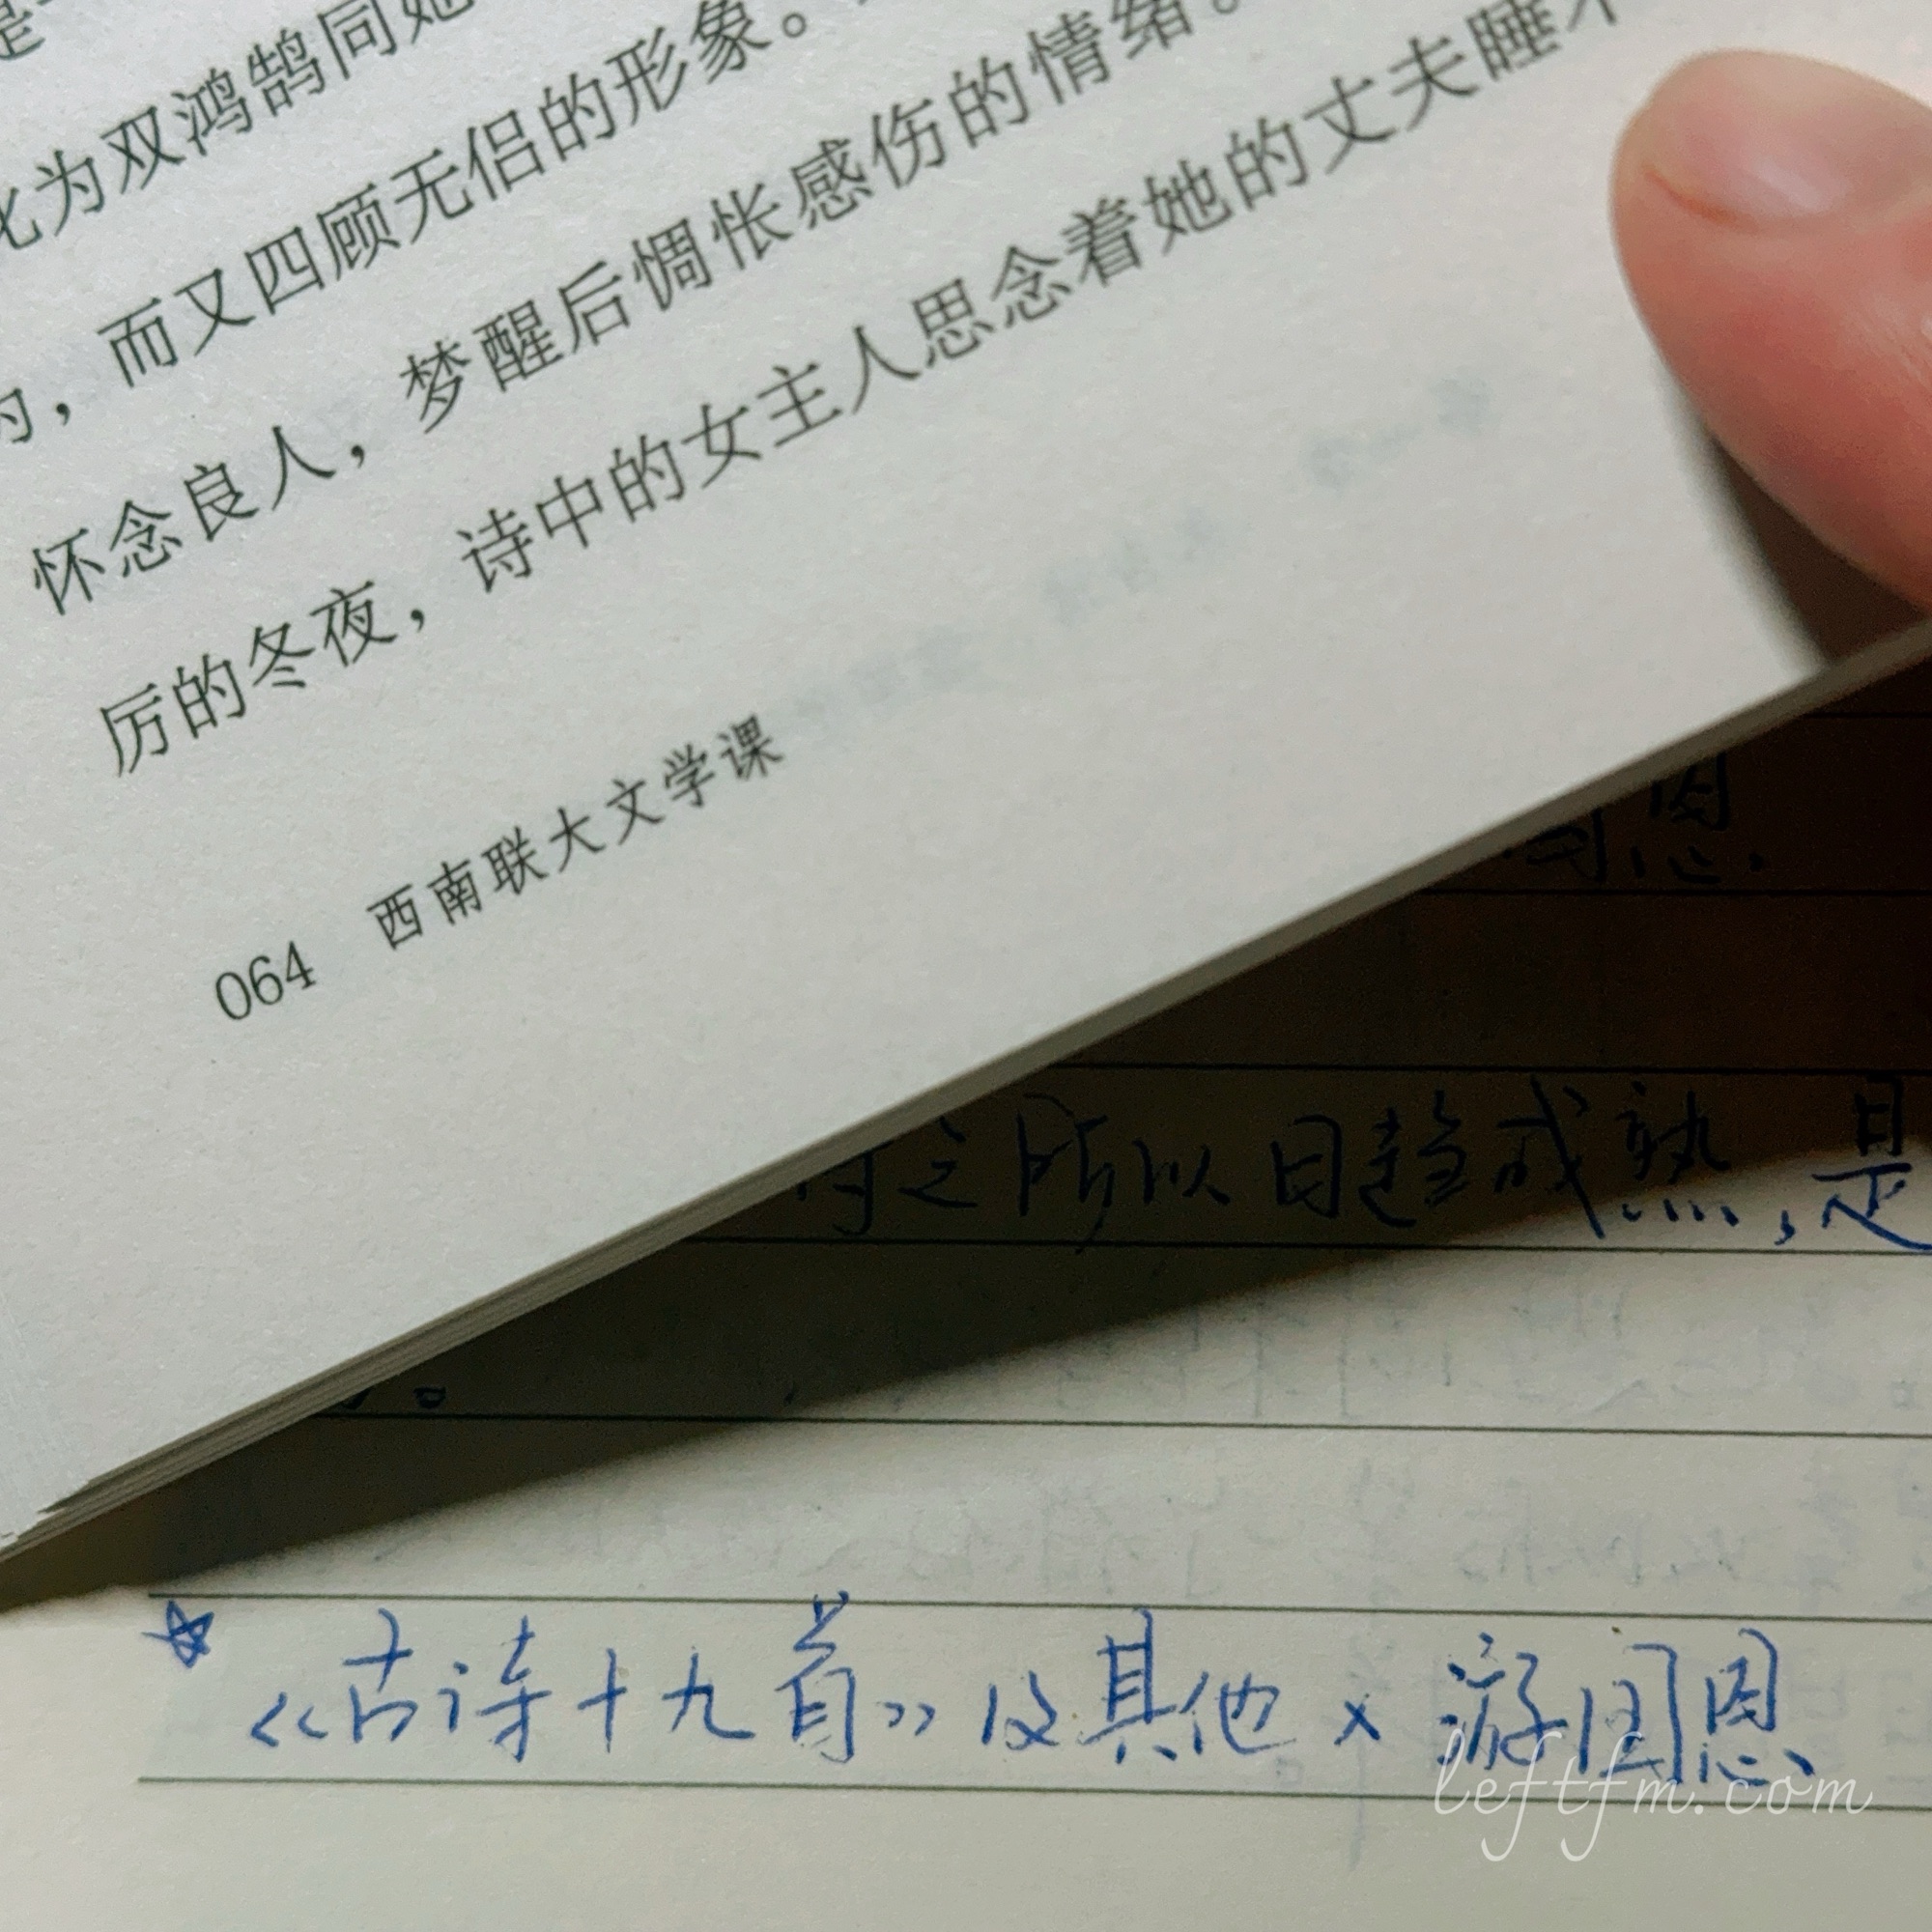 为双鸿鹄同她
，而又四顾无侣的形象。
怀念良人，梦醒后惆怅感伤的情绪。
厉的冬夜，诗中的女主人思念着她的丈夫睡不
064 西南联大文学课
国恩
之所以日趋成熟，是
。
《古诗十九首》及其他 × 游国恩
leftfm.com